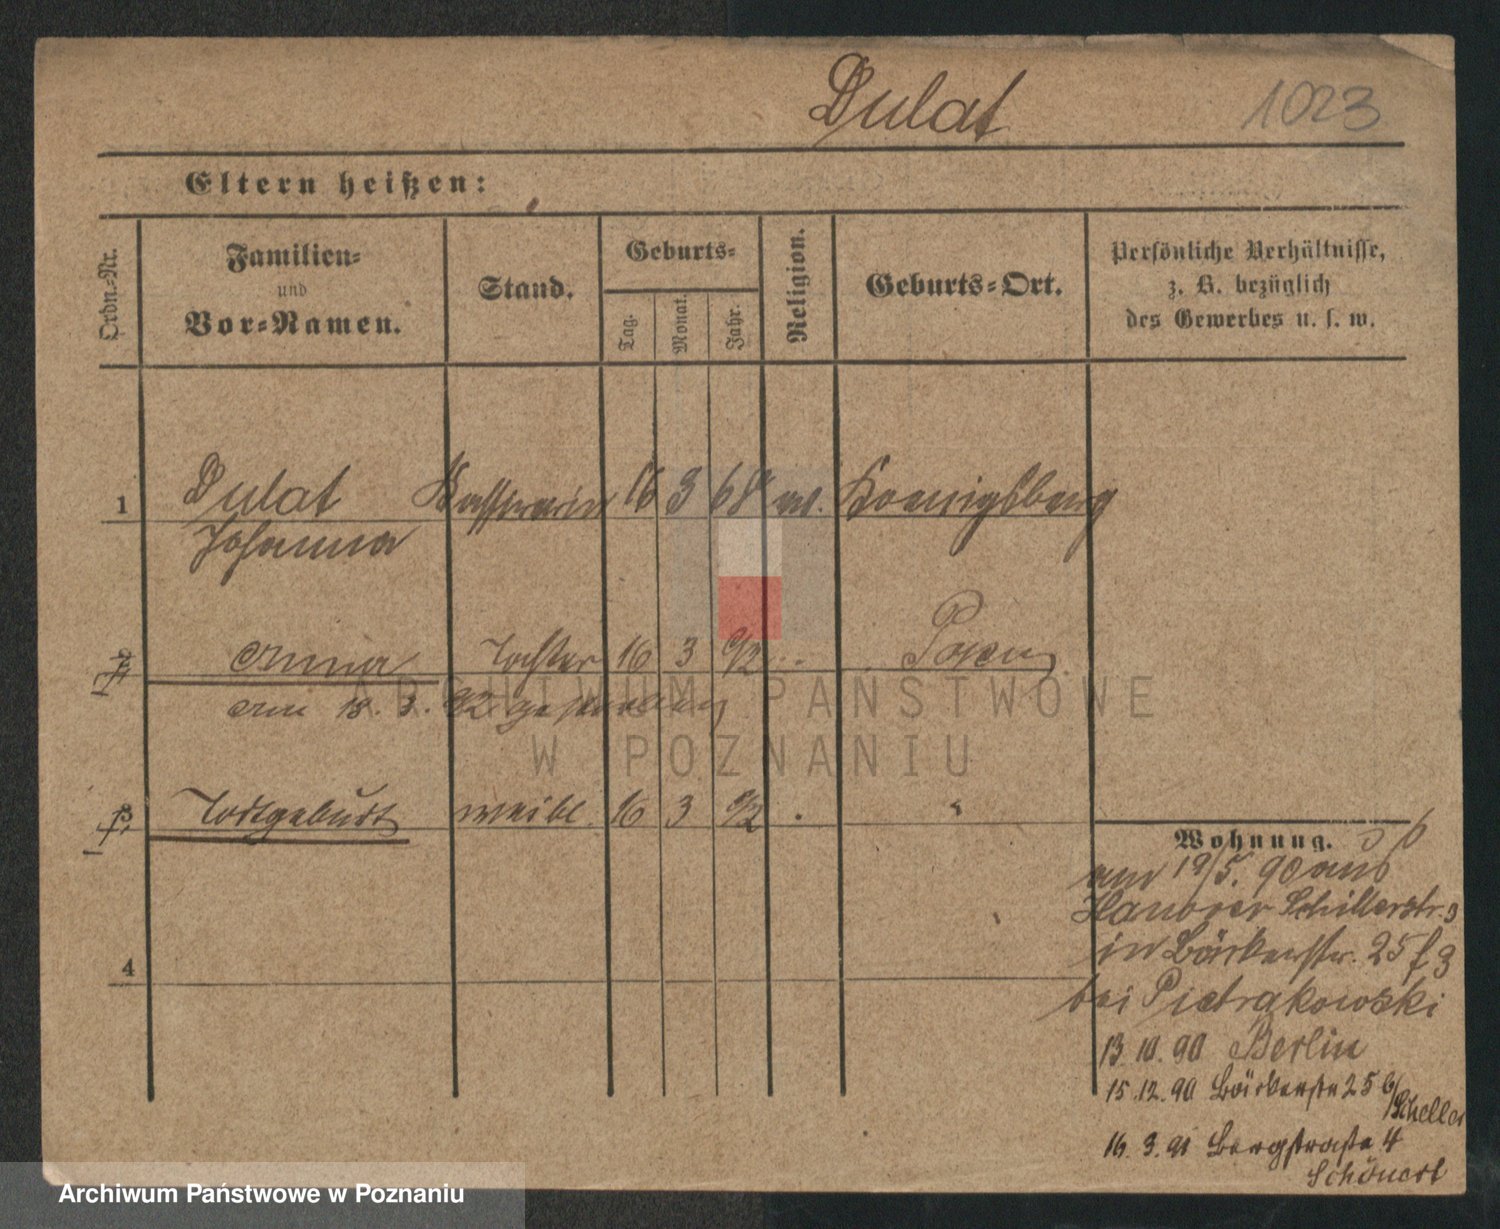 Dulat 1023
Eltern heißen:
Ordn.-Nr.
Familien-
und
Vor-Namen.
Stand.
Geburts-
Tag.
Monat.
Jahr.
Religion.
Geburts-Ort.
Persönliche Verhältnisse,
z. B. bezüglich
des Gewerbes u. s. w.
1 Dulat Kassirerin 16 3 68 Koenigsberg
Johanna
2 Anna Tochter 16 3 92 Posen
am 18. 3. 92 gestorben
3 Todtgeburt weibl. 16 3 92
ARCHIWUM PAŃSTWOWE
W POZNANIU
Wohnung.
am 19/5. 90 aus
Hanover Schillerstr. 3
in Bäckerstr. 25
bei Pietrakowski
13. 10. 90 Berlin
15. 12. 90 Bäckerstr 25 b/
Scheller
16. 3. 91 Bergstraße 4
Schönert
4
Archiwum Państwowe w Poznaniu